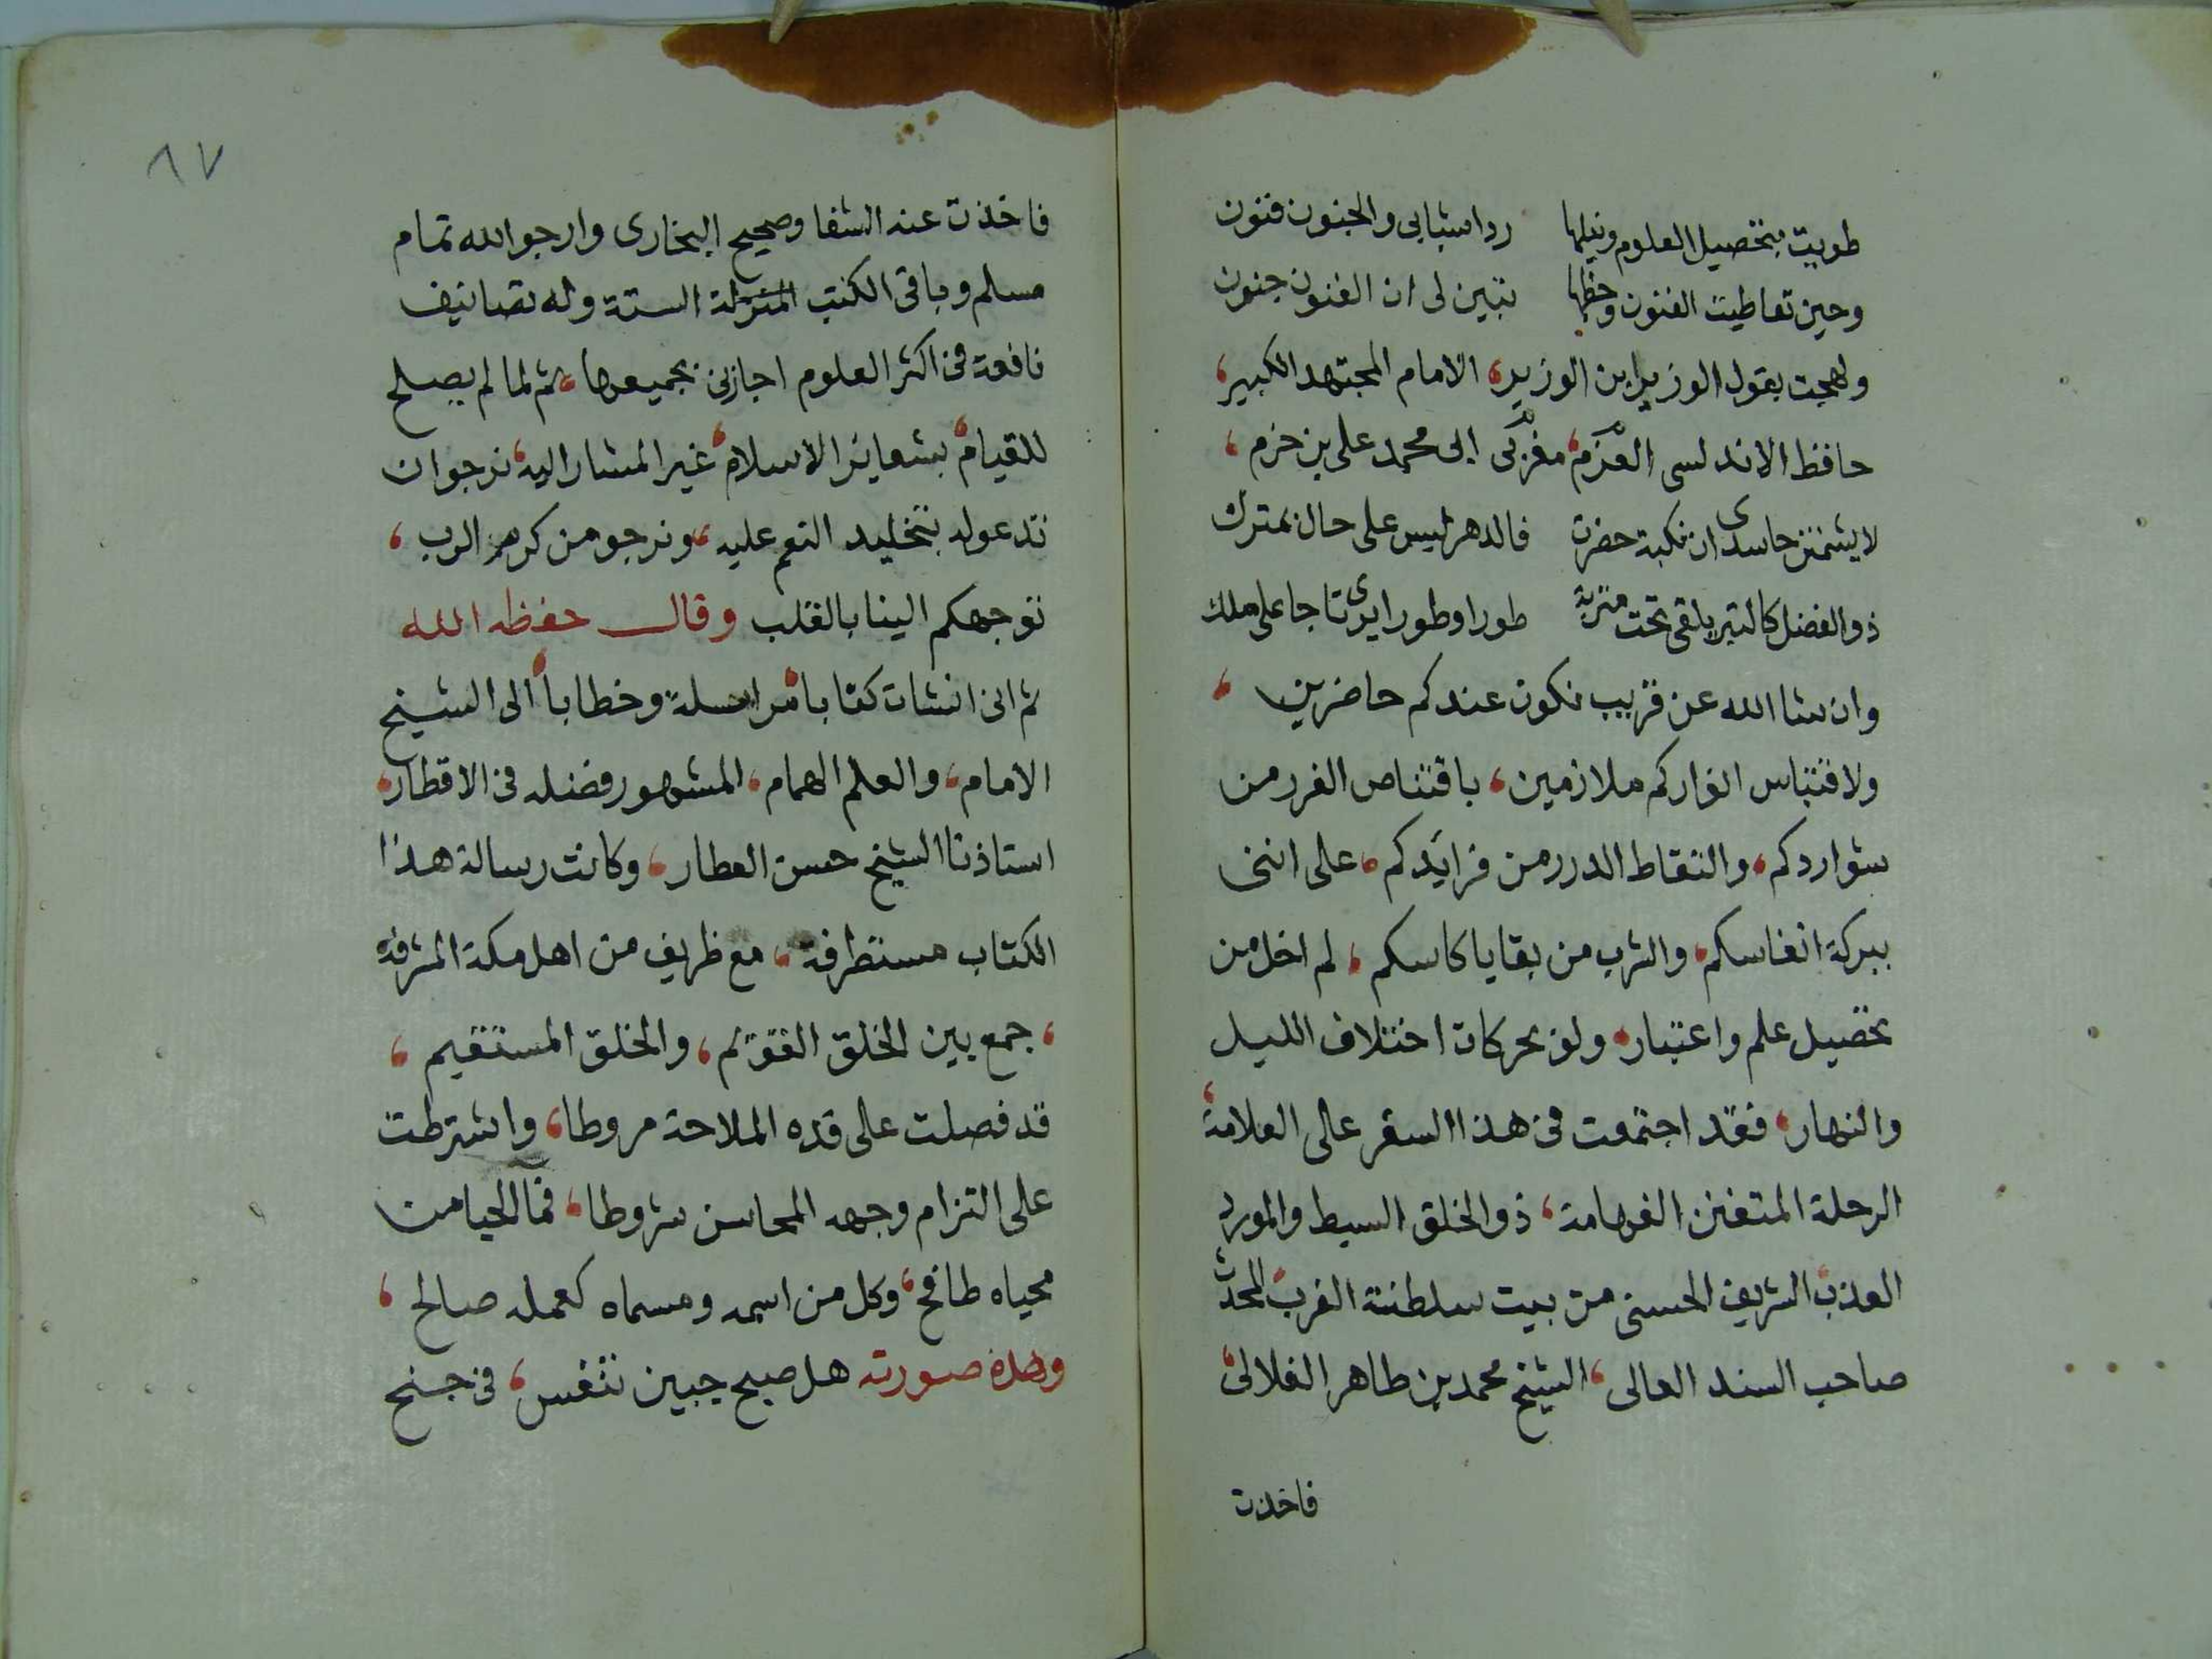 طويت بتحصيل العلوم ونيلها ردا شبابى والجنون فنون
وحين تعاطيت الفنون وحظها تبين لى ان الفنون جنون
ولهجت بقول الوزير ابن الوزير، الامام المجتهد الكبير،
حافظ الاندلسى القرم، مغربى ابى محمد على بن حزم،
لا يشمتن حاسدى ان نكبة حضرت فالدهر ليس على حال بمترك
ذو الفضل كالتبر يلقى تحت متربة طورا وطورا يرى تاجا على ملك
وان شا الله عن قريب نكون عندكم حاضرين،
ولاقتباس انواركم ملازمين، باقتناص الغرر من
شواردكم، والتقاط الدرر من فرايدكم، على اننى
ببركة انفاسكم، والشرب من بقايا كاسكم، لم اخل من
تحصيل علم واعتبار، ولو بحركات اختلاف الليل
والنهار، فقد اجتمعت فى هذا السفر على العلامة،
الرحلة المتفنن الفهامة، ذو الخلق البسيط والمورد
العذب، الشريف الحسنى من بيت سلطنة الغرب، المحدث
صاحب السند العالى، الشيخ محمد بن طاهر الفلالى،
فاخذت
٨٧
فاخذت عنه الشفا وصحيح البخارى وارجو الله تمام
مسلم وباقى الكتب المنزلة الستة وله تصانيف
نافعة فى اكثر العلوم اجازنى بجميعها، ثم لما لم يصلح
للقيام، بشعاير الاسلام، غير المشار اليه، نرجو ان
تدعو له بتخليد النعم عليه، ونرجو من كرم الرب،
توجهكم الينا بالقلب وقال حفظه الله
ثم انى انشات كتابا مراسلة وخطابا، الى الشيخ
الامام، والعلم الهمام، المشهور فضله فى الاقطار،
استاذنا الشيخ حسن العطار، وكانت رسالة هذا
الكتاب مستطرفة، مع ظريف من اهل مكة المشرفة
، جمع بين الخلق القويم، والخلق المستقيم،
قد فصلت على قده الملاحة مروطا، واشترطت
على التزام وجهه المحاسن شروطا، فما الحيا من
محياه طافح، وكل من اسمه ومسماه كعمله صالح،
وهذه صورته هل صبح جبين تنفس، فى جنح